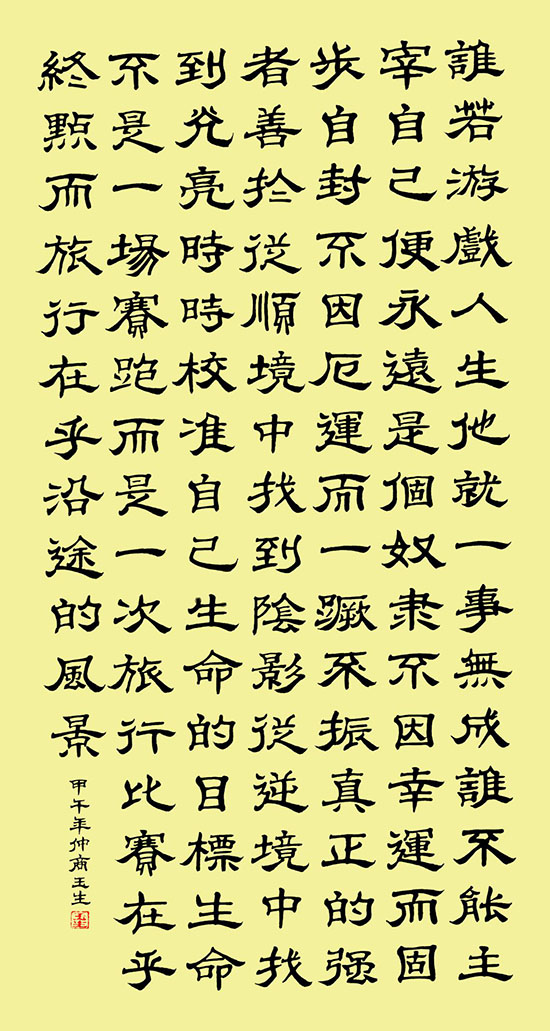 誰若游戲人生他就一事無成誰不能主
宰自己便永遠是個奴隶不因幸運而固
步自封不因厄運而一蹶不振真正的强
者善於從順境中找到陰影從逆境中找
到光亮時時校准自己生命的目標生命
不是一場賽跑而是一次旅行比賽在乎
終點而旅行在乎沿途的風景
甲午年仲商玉生